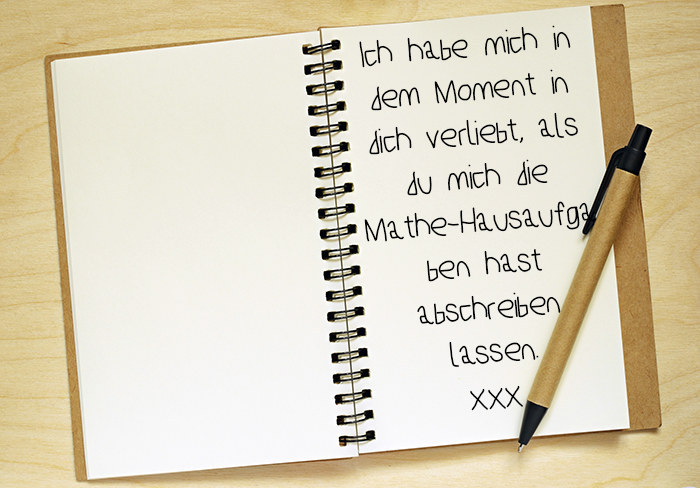 Ich habe mich in
dem Moment in
dich verliebt, als
du mich die
Mathe-Hausaufga
ben hast
abschreiben
lassen.
xxx